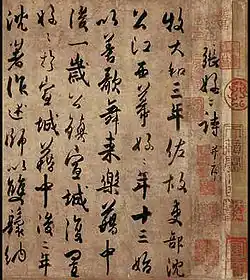 張好々詩 并序
牧大和三年佐故吏部沈
公江西幕好々年十三始
以善歌舞来樂籍中
後一歲公鎮宣城復置
好々於宣城籍中後二年
沈著作述師以雙鬟納